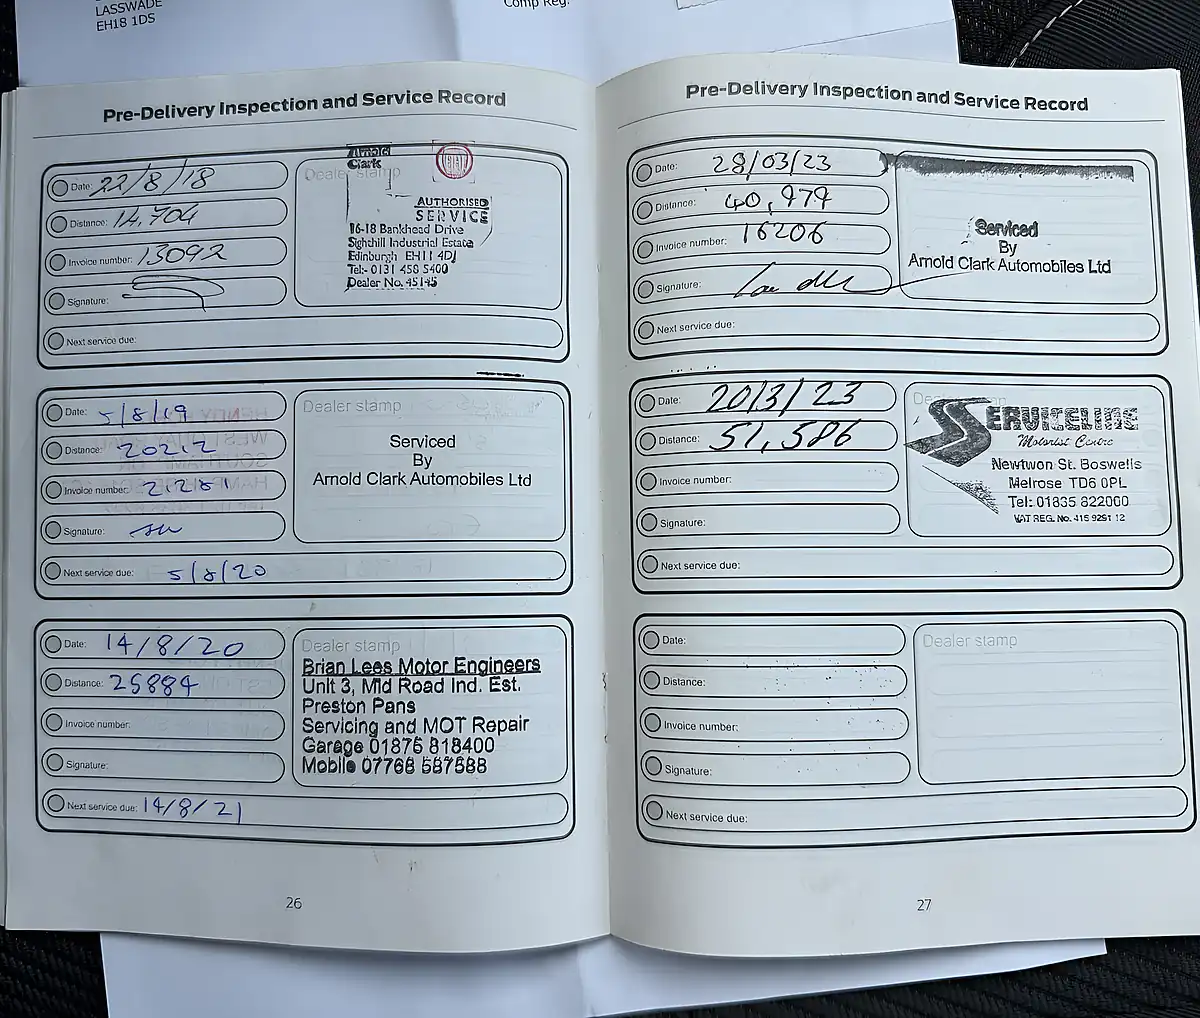 LASSWADE
EH18 1DS
Comp Reg:
Pre-Delivery Inspection and Service Record
Date: 22/8/18
Distance: 14,704
Invoice number: 13092
Signature:
Next service due:
Dealer stamp
Arnold
Clark
AUTHORISED
SERVICE
16-18 Bankhead Drive
Sighthill Industrial Estate
Edinburgh EH11 4DJ
Tel:- 0131 458 5400
Dealer No. 45145
Date: 5/8/19
Distance: 20212
Invoice number: 21281
Signature:
Next service due: 5/8/20
Dealer stamp
Serviced
By
Arnold Clark Automobiles Ltd
Date: 14/8/20
Distance: 25884
Invoice number:
Signature:
Next service due: 14/8/21
Dealer stamp
Brian Lees Motor Engineers
Unit 3, Mid Road Ind. Est.
Preston Pans
Servicing and MOT Repair
Garage 01875 818400
Mobile 07768 587588
26
Pre-Delivery Inspection and Service Record
Date: 28/03/23
Distance: 40,979
Invoice number: 16206
Signature:
Next service due:
Serviced
By
Arnold Clark Automobiles Ltd
Date: 20/3/23
Distance: 51,586
Invoice number:
Signature:
Next service due:
SERVICELINE
Motorist Centre
Newtwon St. Boswells
Melrose TD6 0PL
Tel: 01835 822000
VAT REG. No. 415 9291 12
Date:
Distance:
Invoice number:
Signature:
Next service due:
Dealer stamp
27